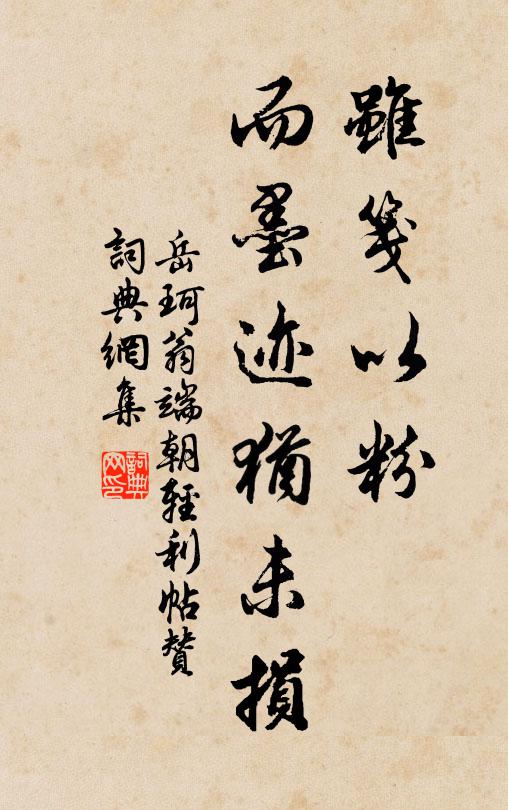 雖箋以粉
而墨迹猶未損
岳珂翁端朝輕利帖贊
詞典網集
詞典
网印